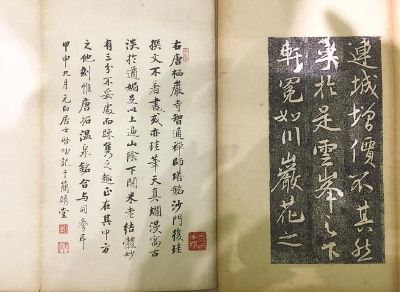 連城增價不其然
矣於是雲峯之下
軒冕如川巖花之
右唐栖巖寺智通禪師塔銘沙門復珪
撰文不著書或亦珪筆天真爛漫寓古
淡於遒媚足以上追山陰下開米老結體妙
有三分不妥處而疎雋之趣正在其中方
之他刻惟唐拓溫泉銘合與同參耳
甲申九月元白居士啓功記于簡靖堂